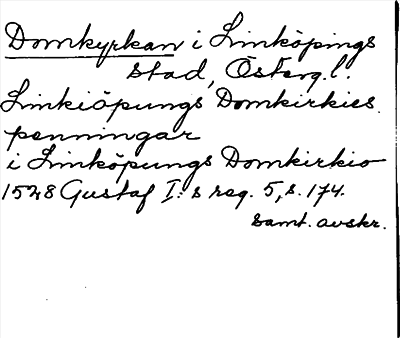 Domkyrkan i Linköpings
stad, Österg. l.
Linkiöpungs Domkirkies
penningar
i Linköpungs Domkirkio
1528 Gustaf I:s reg. 5, s. 174.
samt. avskr.